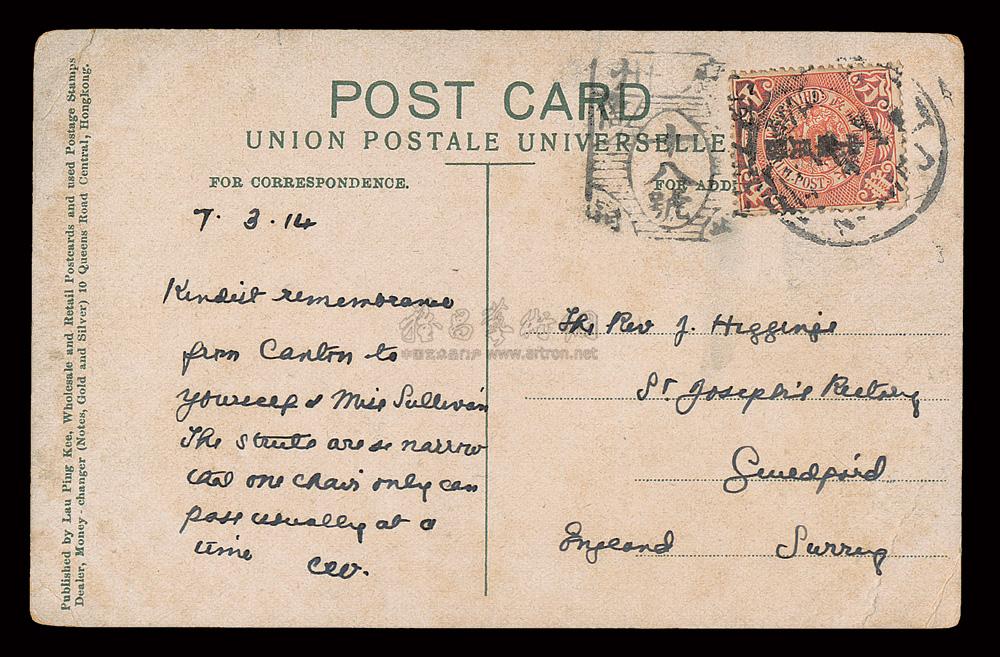 POST CARD
UNION POSTALE UNIVERSELLE
FOR CORRESPONDENCE.
7.3.14
Kindest remembrance
from Canton to
yourself & Miss Sullivan
The streets are so narrow
that one chair only can
pass usually at a
time
FOR ADD
八號
The Rev J. Higgins
St Joseph's Rectory
Guildford
England Surrey
Published by Lau Ping Kee, Wholesale and Retail Postcards and used Postage Stamps
Dealer, Money-changer (Notes, Gold and Silver) 10 Queens Road Central, Hongkong.
www.artron.net